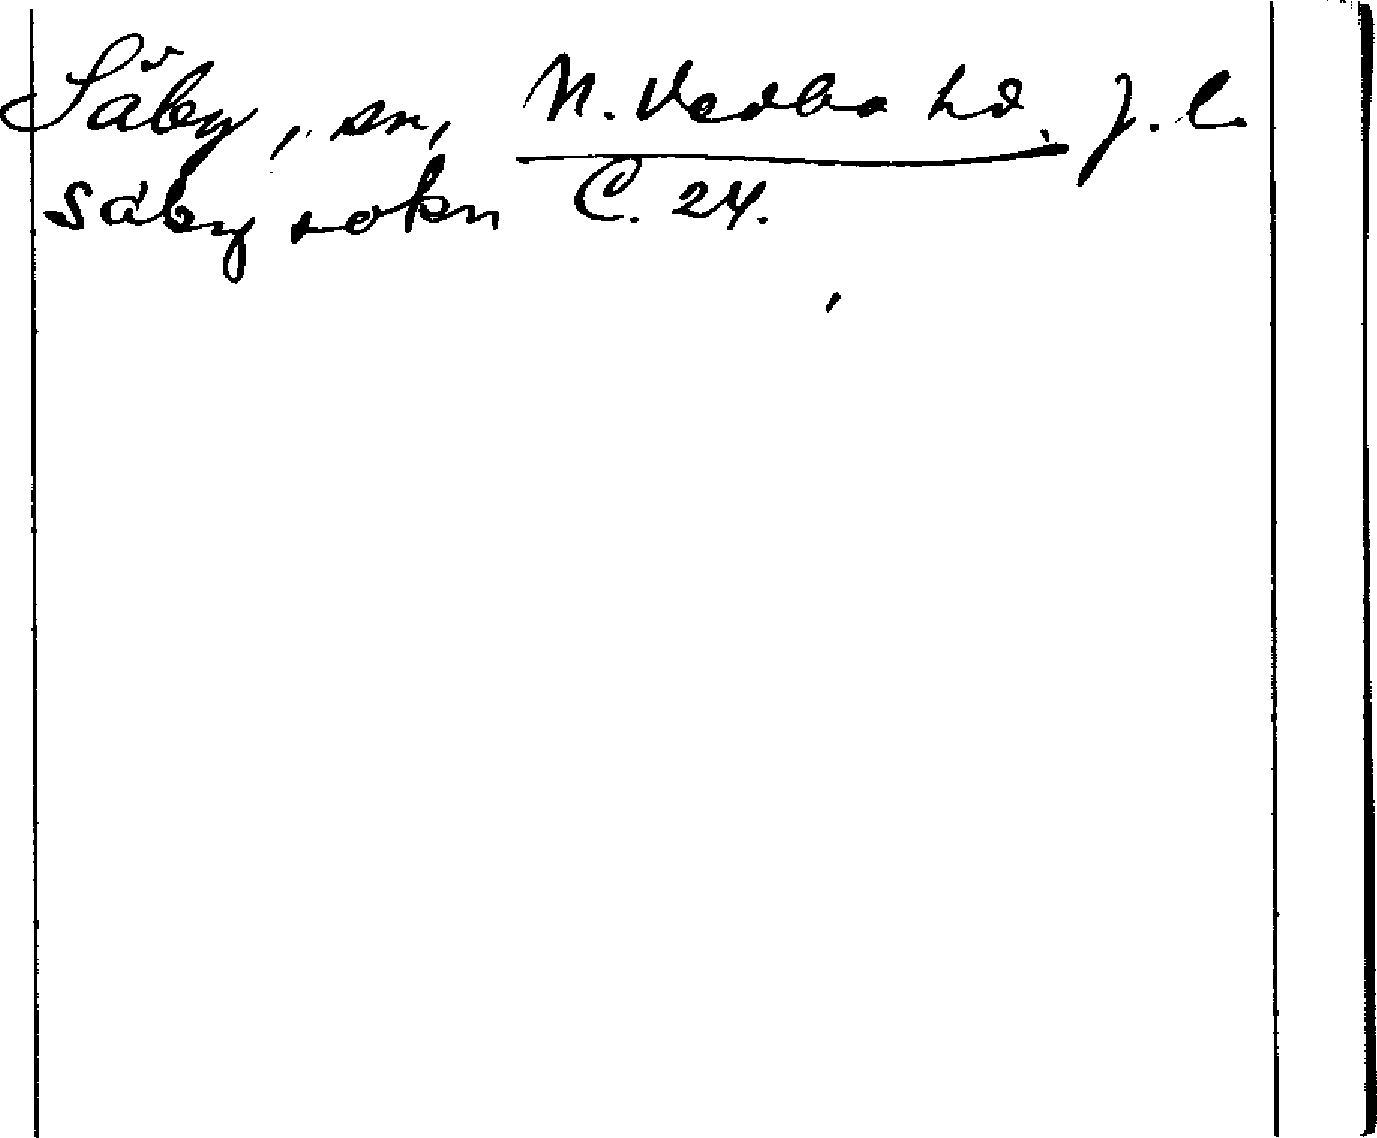 Säby, sn, N. Vedbo hd. J. l.
Säby sokn C. 24.